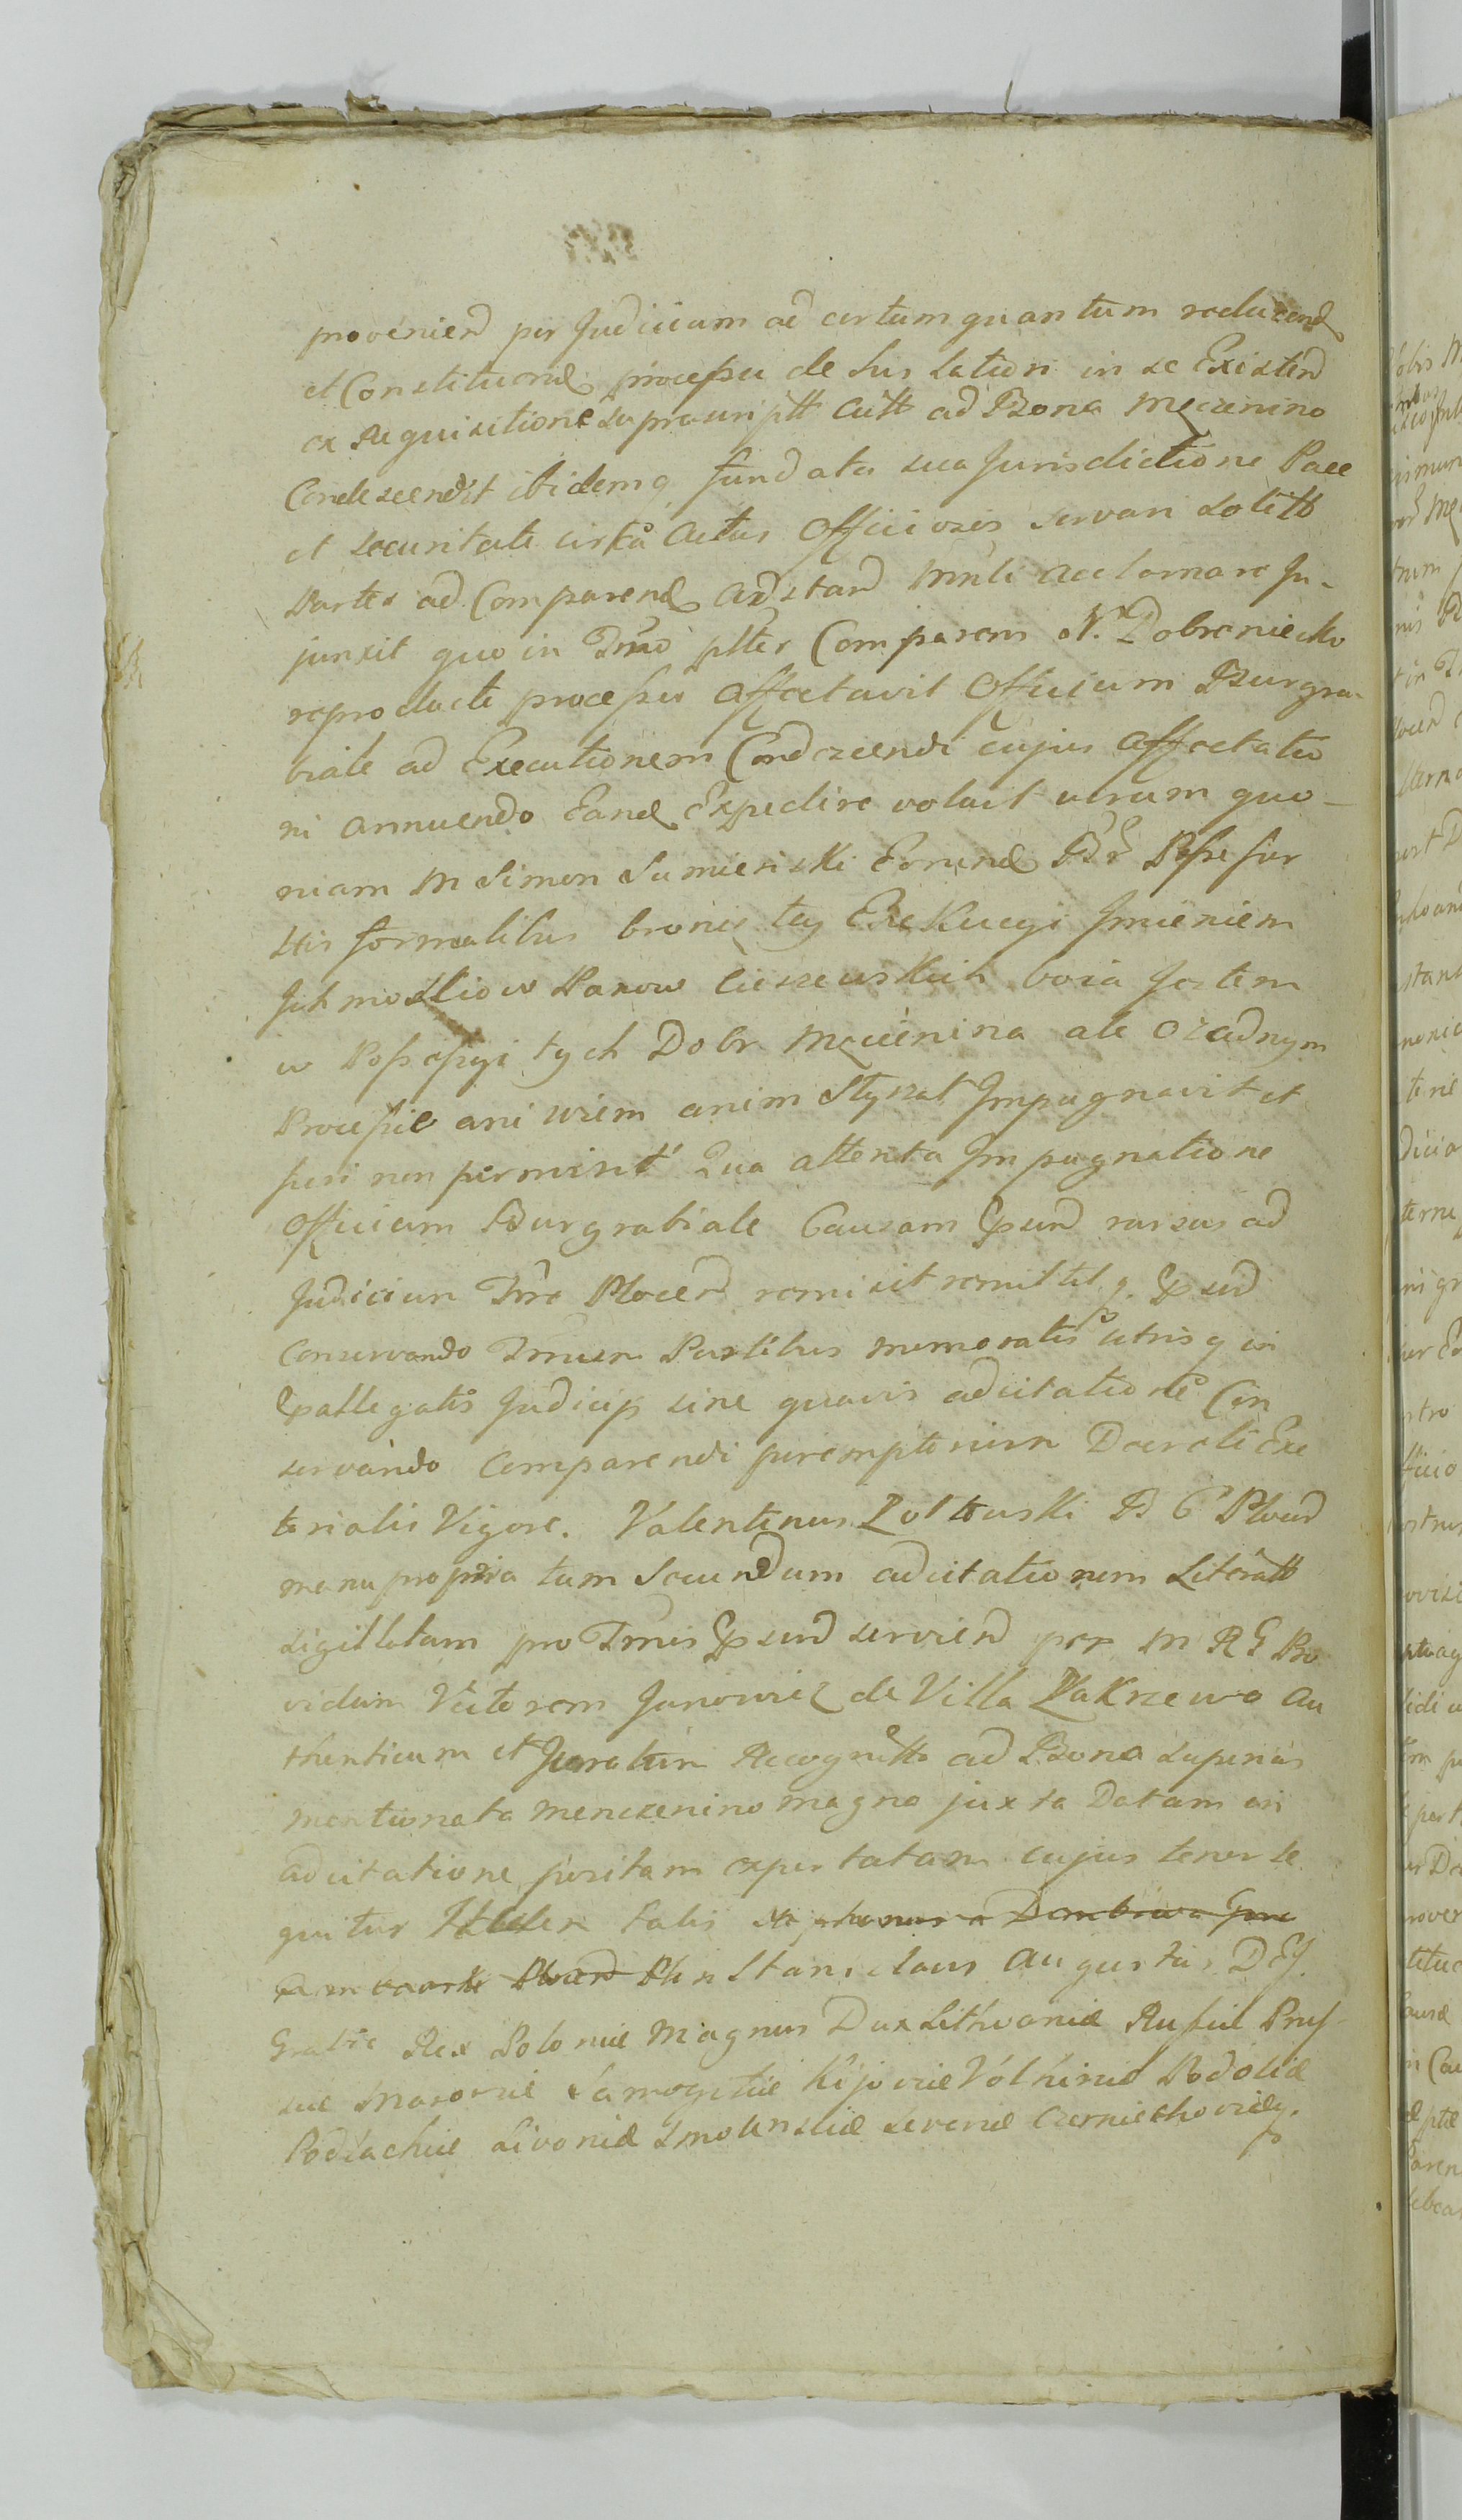 provenien per Judicium ad certum quantum reducend
et Constituend processu de sus lation in se Existen
ex Requisitione supra scriptt Citt ad Bona Męczenino
Condescendit ibidemq fundata sua Jurisdictione Pace
et securitate circa Actus Officiosos servari solitt
Partes ad Comparend adstand Mnli acclamare In-
junxit quo in Tmno ptter Comparens N. Dobraniecki
reproducto processu affectavit Officium Burgra-
biale ad Executionem Condscendi cujus affectatio
ni annuendo Eand Expedire voluit verum quo-
niam M Simon Sumienski Eorund Br Possessor
his formalibus bronię tey Exekucyi Jmieniem
Jchmościow Panow Cieszewskich boia Jestem
w Possessyi tych Dobr Męczenina ale ożadnym
Processie ani wiem anim słyszał Jmpugnavit et
fieri non permisit Qua attenta Jmpugnatione
Officium Burgrabiale Causam Epsend rursus ad
Judicium Trre Plocen remisit remittitq Epsend
Conservando Tmnum Partibus memoratis utrisq in
Epallegatis Judicijs sine quavis adcitatione Con
servando Comparendi peremptorium Decreti Exe
torialis Vigore. Valentinus Zołtowski B C Plocen
manu propria tum Secundum adcitationem Literatt
sigillatam pro Tmnis Epsend servien per M R G Pro
vidum Victorem Janowicz de Villa Zakrzewo Au
thenticum et Juratum Recognitt ad Bona superius
mentionata Menczenino magno juxta Datam in
adcitatione positam exportatam cujus tenor se
quitur talis a Dembowa
Stanislaus Augustus D G
Gratia Rex Poloniæ Magnus Dux Lithvaniæ Russiæ Prus-
siæ Masoviæ Samogitiæ Kijoviæ Volhiniæ Podoliæ
Podlachiæ Livoniæ Smolensciæ Severiæ Czerniechoviæq.